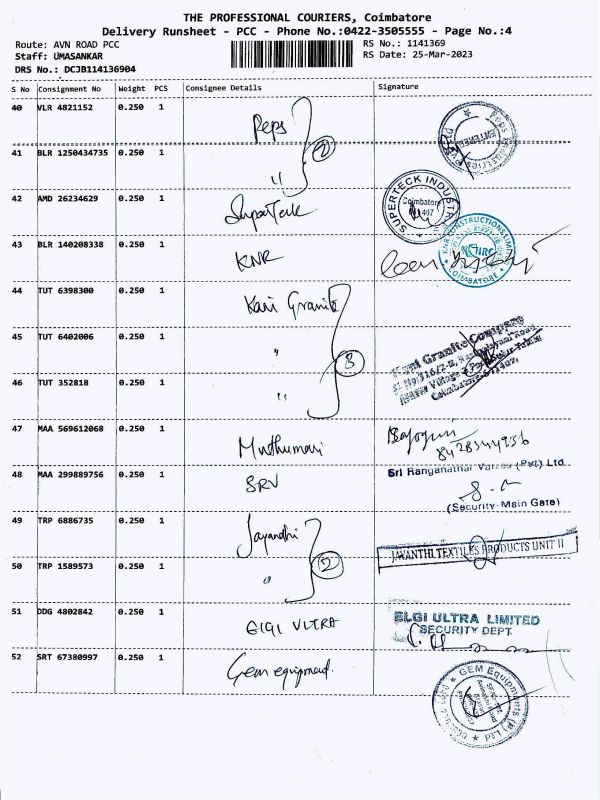 THE PROFESSIONAL COURIERS, Coimbatore
Delivery Runsheet - PCC - Phone No.:0422-3505555 - Page No.:4
Route: AVN ROAD PCC RS No.: 1141369
Staff: UMASANKAR RS Date: 25-Mar-2023
DRS No.: DCJB114136904
S No Consignment No Weight PCS Consignee Details Signature
40 VLR 4821152 0.250 1 Peps
41 BLR 1250434735 0.250 1 " 2
42 AMD 26234629 0.250 1 SuperTeck SUPERTECK INDUSTR Coimbatore
43 BLR 140208338 0.250 1 KNR KNR CONSTRUCTIONS LIMITED KNRC COIMBATORE
44 TUT 6398300 0.250 1 Kani Granite
45 TUT 6402006 0.250 1 " 3 Kani Granite Company
46 TUT 352818 0.250 1 " Coimbatore
47 MAA 569612068 0.250 1 Muthumari 8428344936
48 MAA 299889756 0.250 1 SRV Sri Ranganathar Valves (Pvt) Ltd
(Security-Main Gate)
49 TRP 6886735 0.250 1 Jayandhi
50 TRP 1589573 0.250 1 " 2 JAYANTHI TEXTILES PRODUCTS UNIT II
51 DDG 4802842 0.250 1 ElGI ULTRA ELGI ULTRA LIMITED
SECURITY DEPT.
52 SRT 67380997 0.250 1 Gem equipment. GEM Equipments (P) Ltd